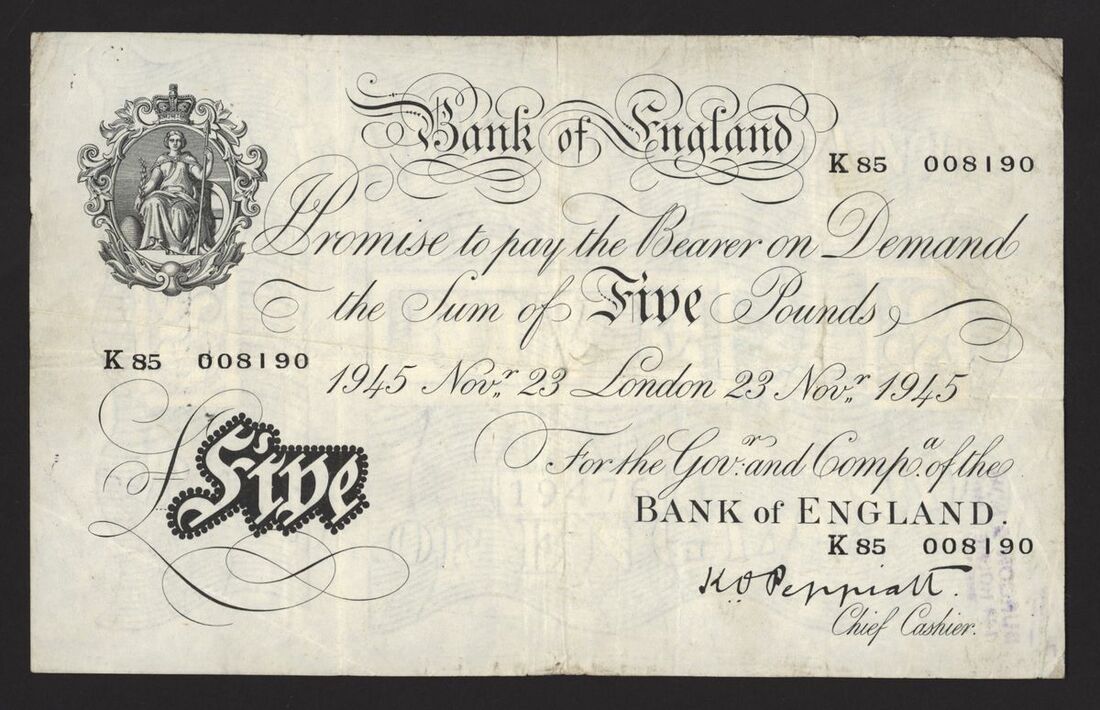 Bank of England
K 85 008190
I Promise to pay the Bearer on Demand
the Sum of Five Pounds
K 85 008190
1945 Nov.r 23 London 23 Nov.r 1945
£ Five
For the Gov.r and Comp.a of the
BANK of ENGLAND.
K 85 008190
K.O. Peppiatt.
Chief Cashier.